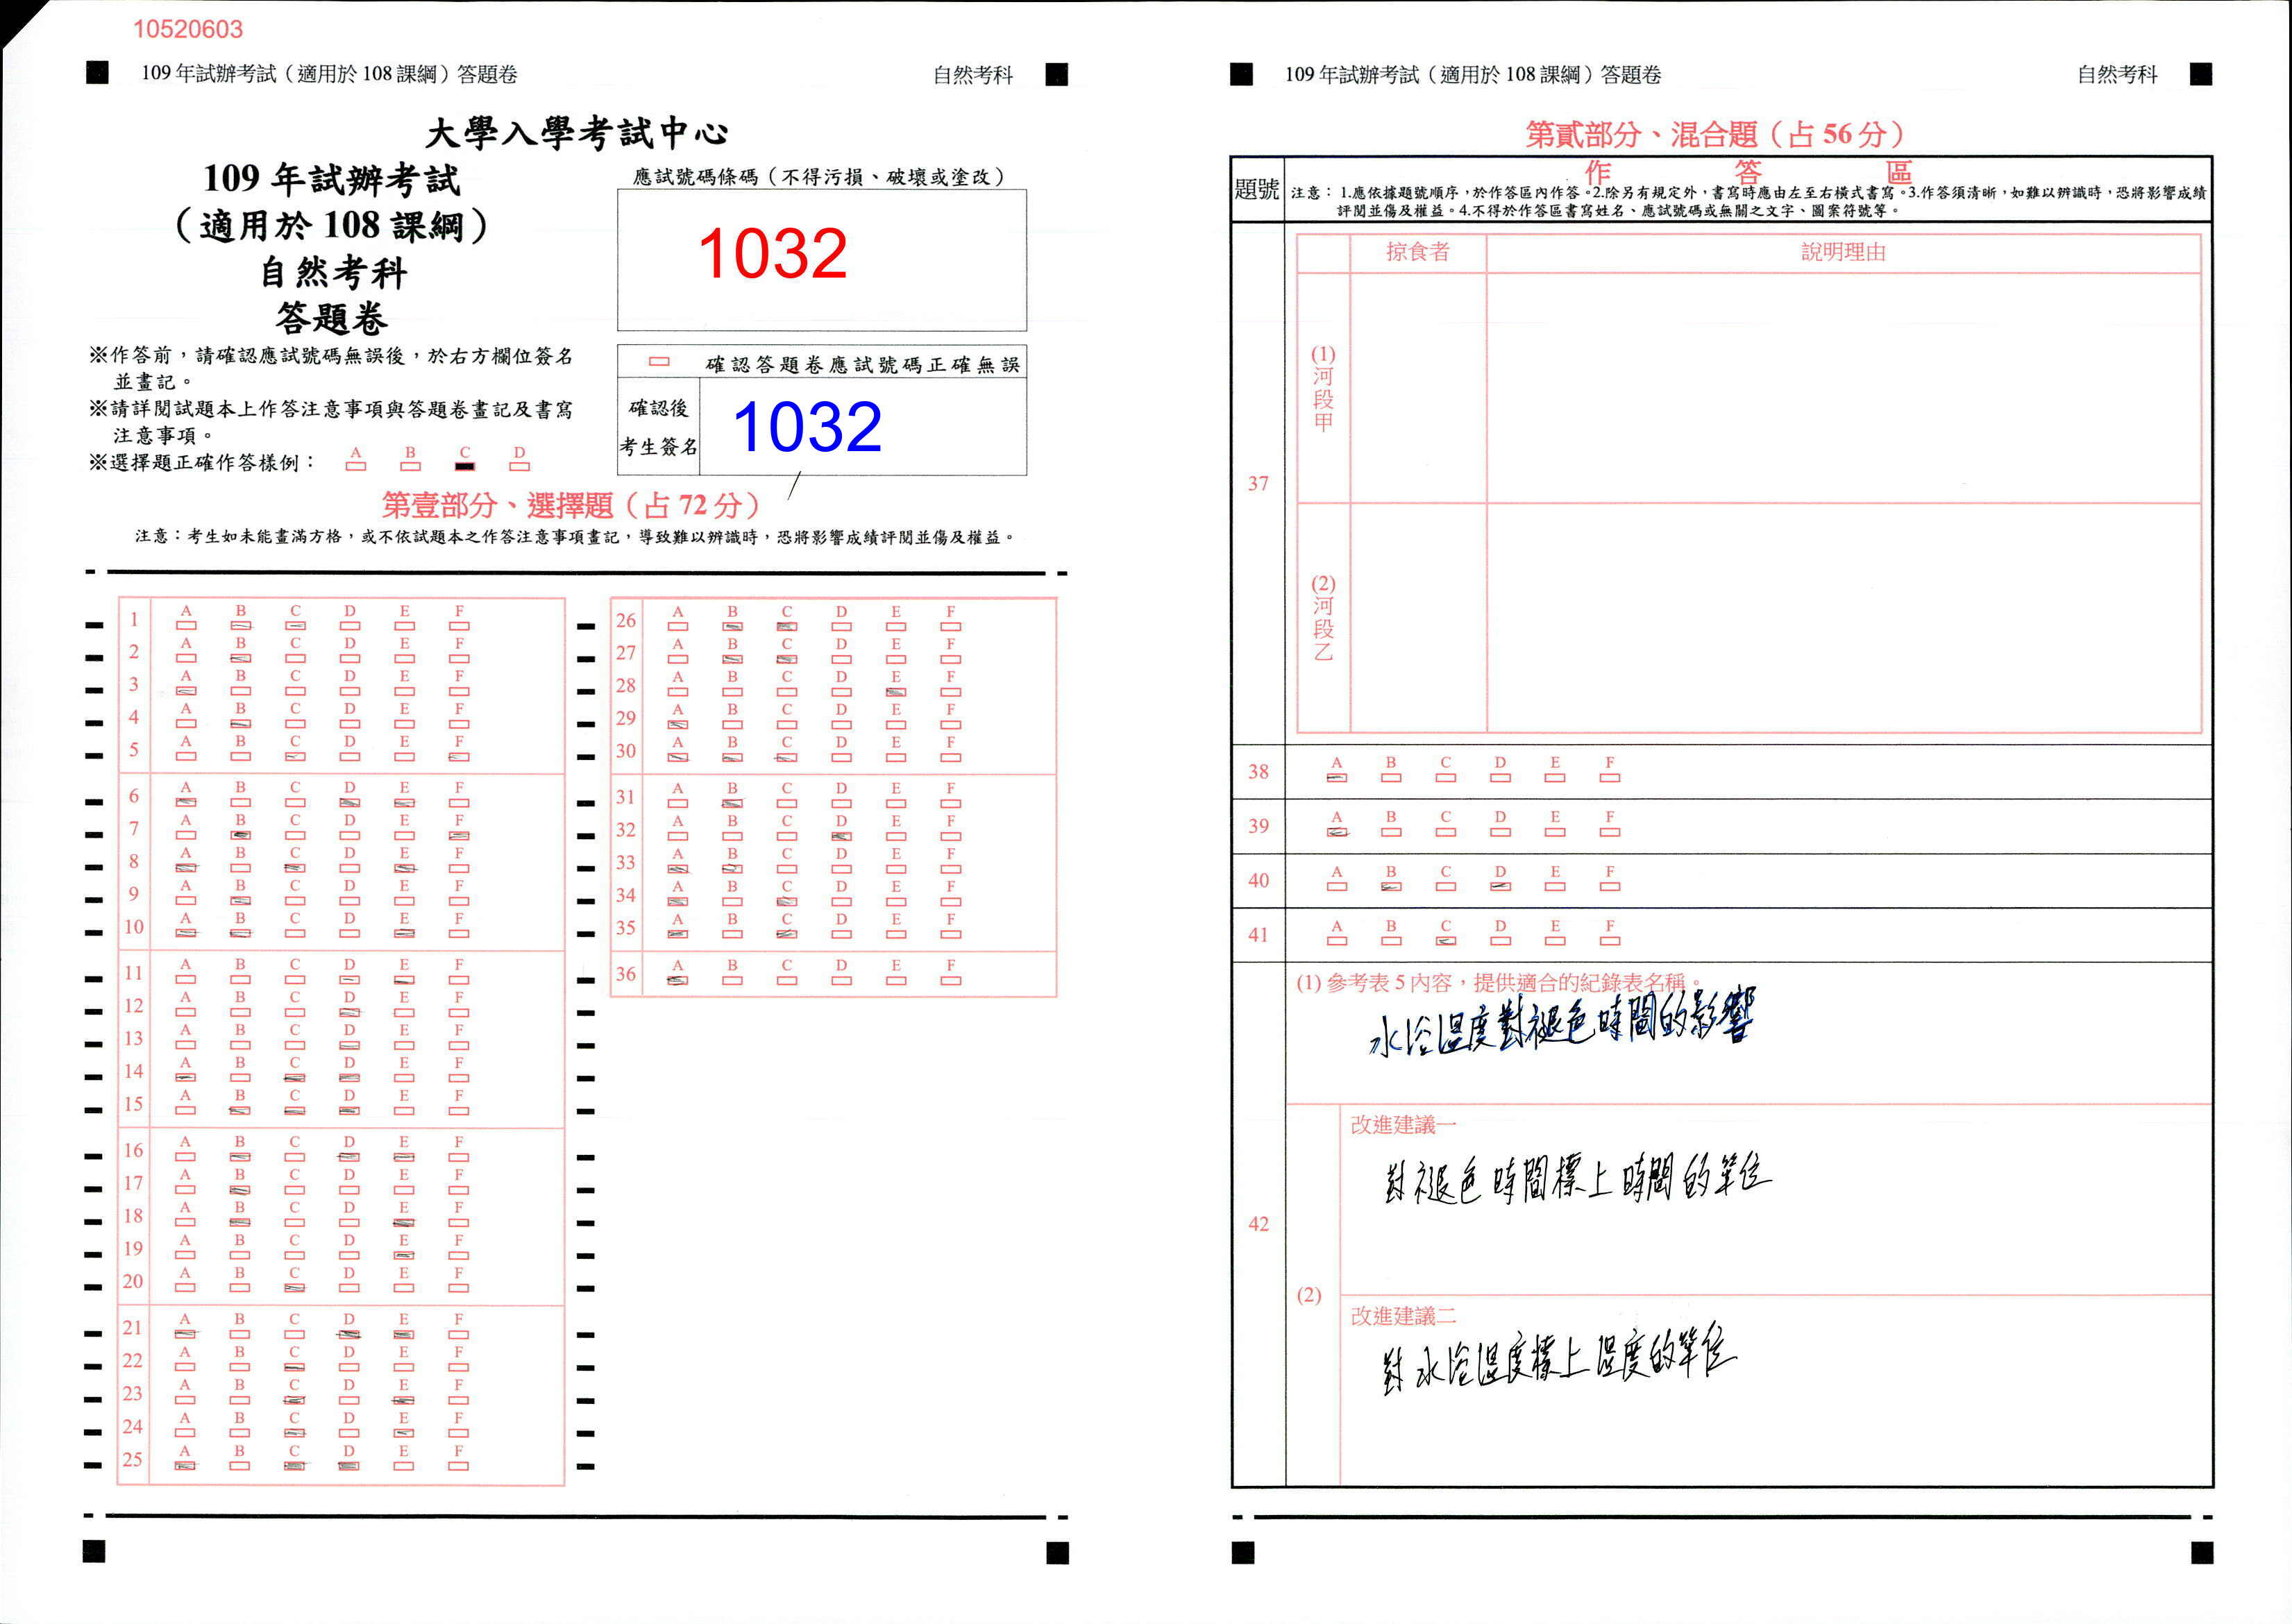 10520603
109 年試辦考試（適用於 108 課綱）答題卷 自然考科
大學入學考試中心
109 年試辦考試
（適用於 108 課綱）
自然考科
答題卷
應試號碼條碼（不得污損、破壞或塗改）
1032
確認答題卷應試號碼正確無誤
確認後
考生簽名
1032
※作答前，請確認應試號碼無誤後，於右方欄位簽名
並畫記。
※請詳閱試題本上作答注意事項與答題卷畫記及書寫
注意事項。
※選擇題正確作答樣例： A B C D
第壹部分、選擇題（占 72 分）
注意：考生如未能畫滿方格，或不依試題本之作答注意事項畫記，導致難以辨識時，恐將影響成績評閱並傷及權益。
1 A B C D E F
2 A B C D E F
3 A B C D E F
4 A B C D E F
5 A B C D E F
6 A B C D E F
7 A B C D E F
8 A B C D E F
9 A B C D E F
10 A B C D E F
11 A B C D E F
12 A B C D E F
13 A B C D E F
14 A B C D E F
15 A B C D E F
16 A B C D E F
17 A B C D E F
18 A B C D E F
19 A B C D E F
20 A B C D E F
21 A B C D E F
22 A B C D E F
23 A B C D E F
24 A B C D E F
25 A B C D E F
26 A B C D E F
27 A B C D E F
28 A B C D E F
29 A B C D E F
30 A B C D E F
31 A B C D E F
32 A B C D E F
33 A B C D E F
34 A B C D E F
35 A B C D E F
36 A B C D E F
109 年試辦考試（適用於 108 課綱）答題卷 自然考科
第貳部分、混合題（占 56 分）
題號 作 答 區
注意：1.應依據題號順序，於作答區內作答。2.除另有規定外，書寫時應由左至右橫式書寫。3.作答須清晰，如難以辨識時，恐將影響成績
評閱並傷及權益。4.不得於作答區書寫姓名、應試號碼或無關之文字、圖案符號等。
掠食者 說明理由
37
(1)河段甲
(2)河段乙
38 A B C D E F
39 A B C D E F
40 A B C D E F
41 A B C D E F
42
(1) 參考表 5 內容，提供適合的紀錄表名稱。
水浴溫度對褪色時間的影響
(2)
改進建議一
對褪色時間標上時間的單位
改進建議二
對水浴溫度標上溫度的單位